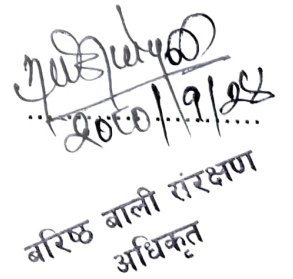 २०८०/९/२४
बरिष्ठ बाली संरक्षण
अधिकृत